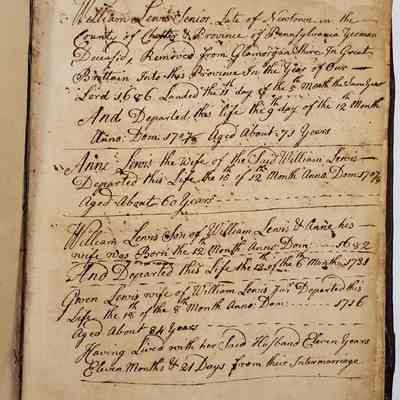 William Lewis Senior, Late of Newtown in the
County of Chester & Province of Pensylvania Yeoman
Deceasd, Removed from Glamorgan Shire In Great
Brittain Into this Province In the Year of Our
Lord 1686 Landed the 11th day of the 5th Month the Same Year
And Departed this life the 9th day of the 12 Month
Anno: Dom: 1707/8 Aged About 71 Years
Anne Lewis the Wife of the Said William Lewis
Departed this Life the 15th of 12th Month Anno: Dom: 1707/8
Aged About 60 Years
William Lewis Son of William Lewis & Anne his
wife was Born the 12th Month Anno: Dom: 1682
And Departed this Life the of the 6th Month 1731
Gwen Lewis wife of William Lewis Junr Departed this
Life the 18th of the 8th Month Anno: Dom: 1716
Aged About 34 Years
Having Lived with her Said Husband Eleven Years
Eleven Months & 21 Days from their Intermarriage